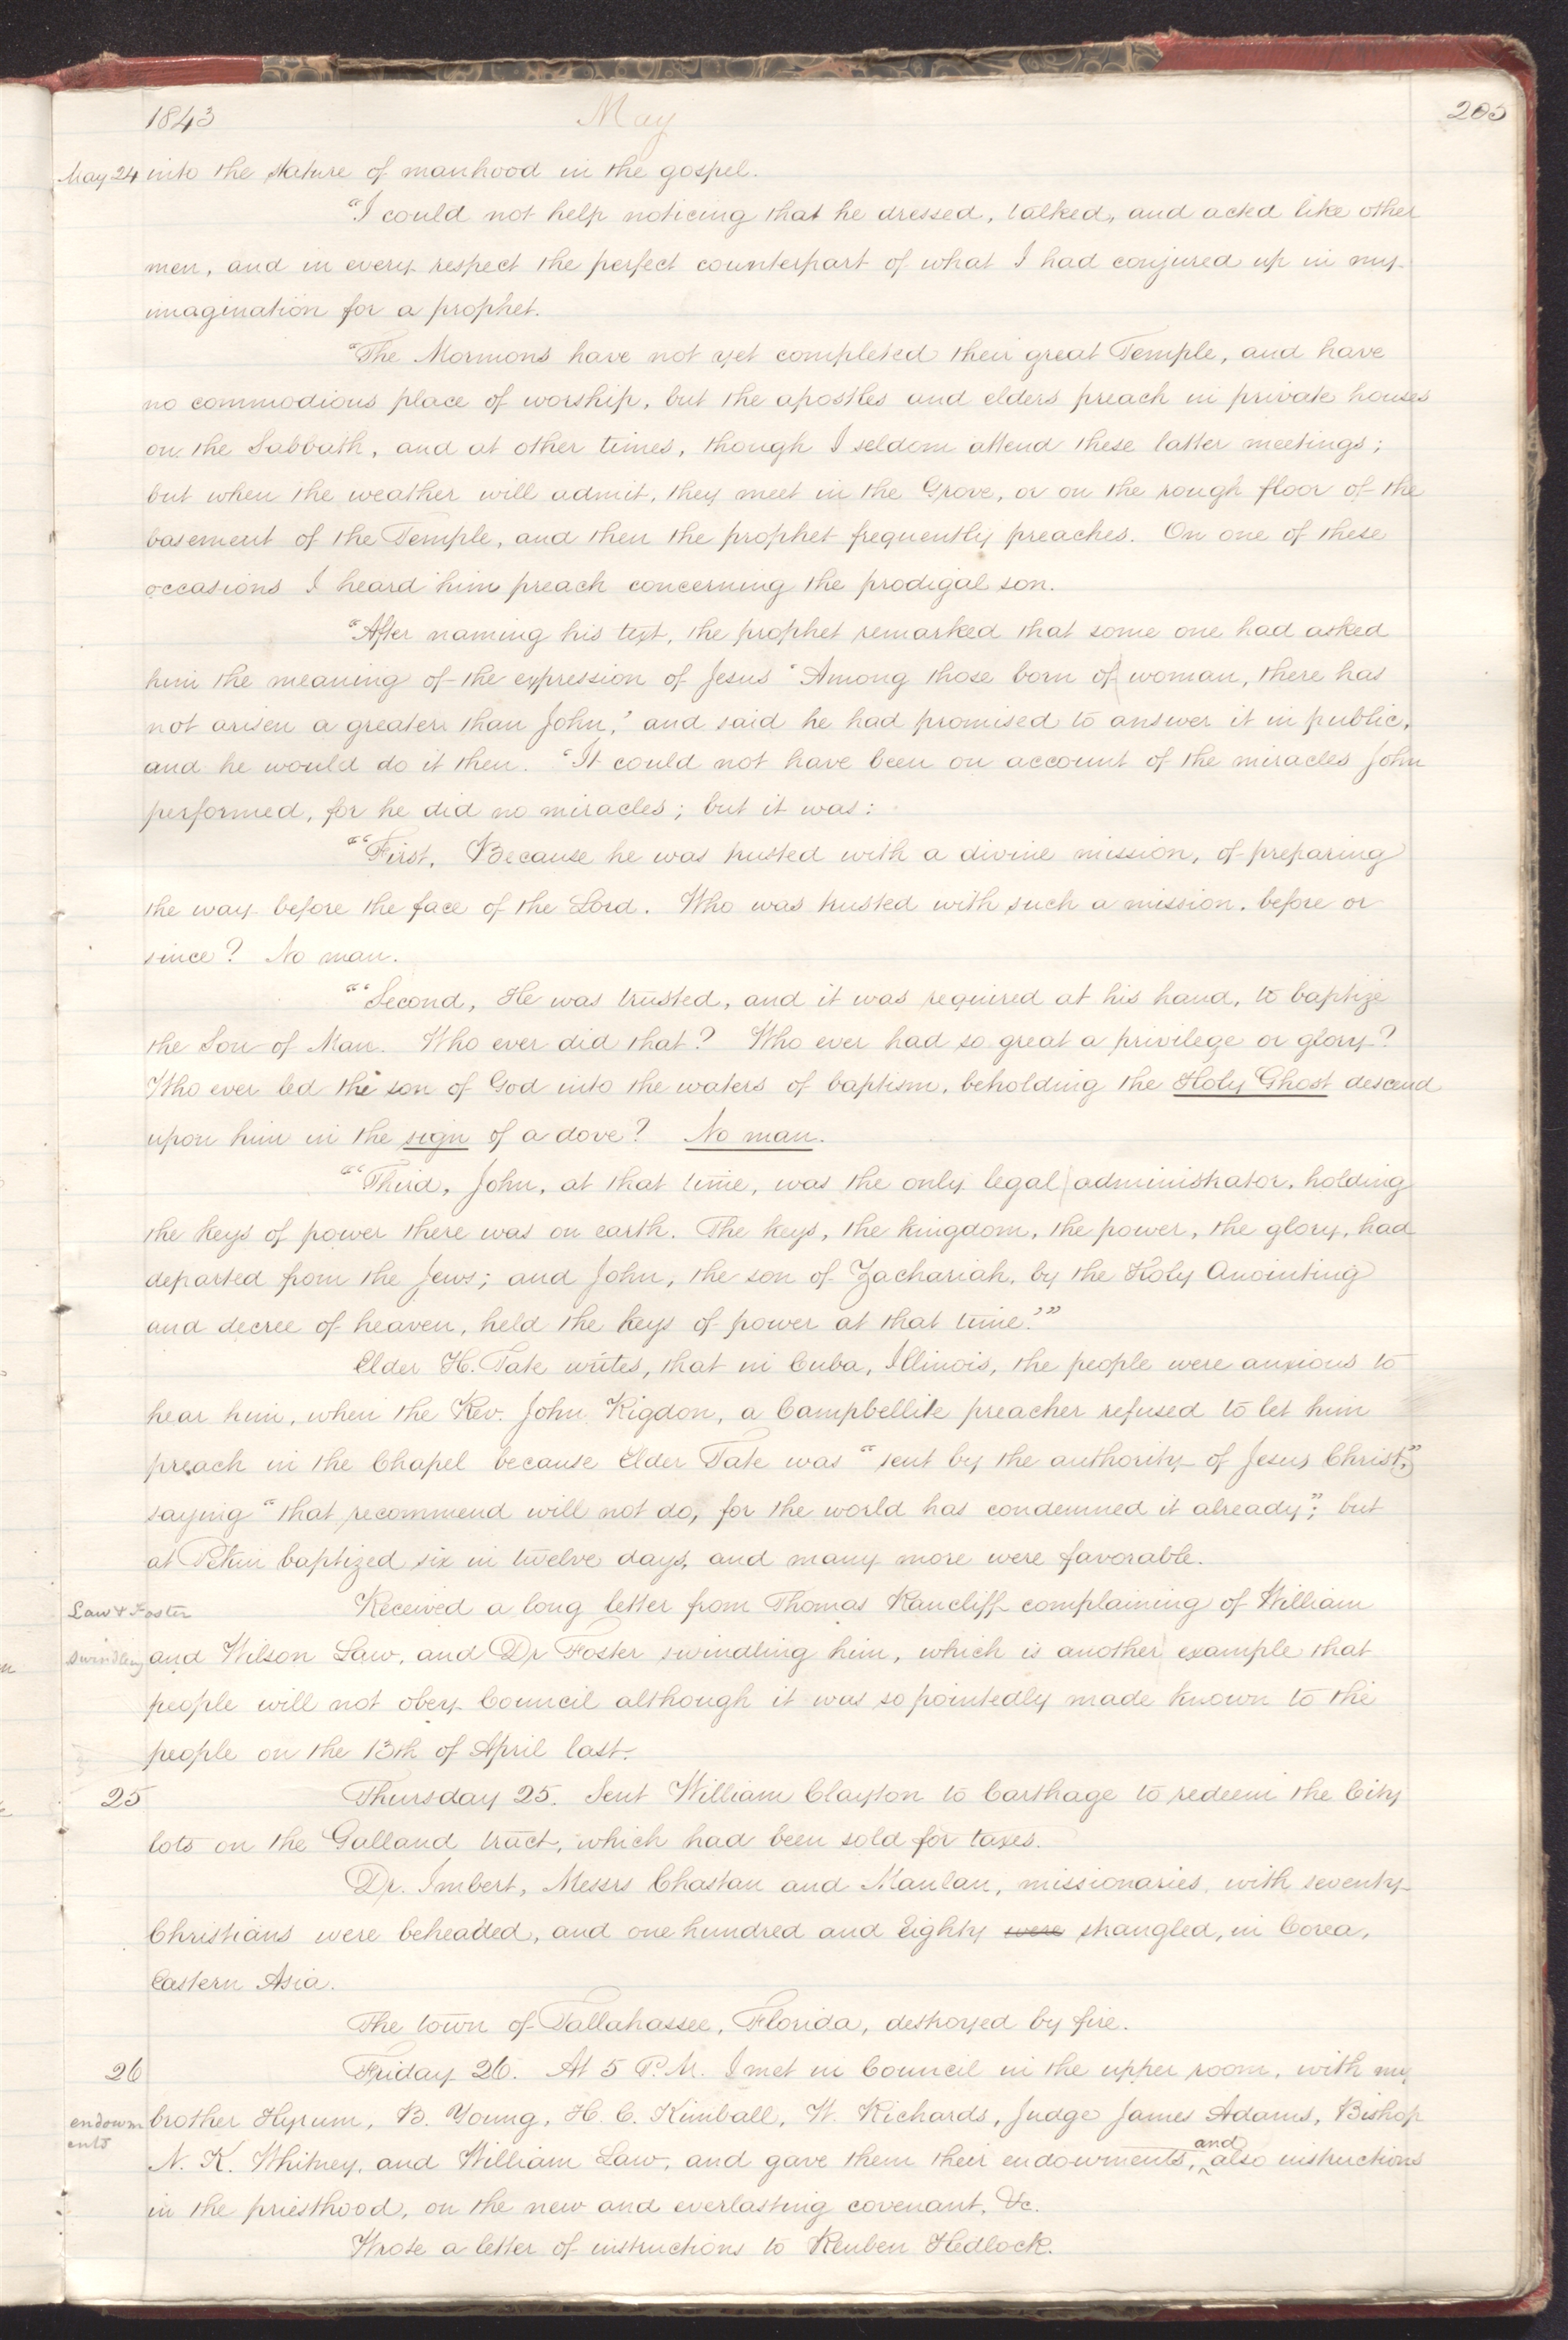 1843 May 205
May 24 into the stature of manhood in the gospel.
"I could not help noticing that he dressed, talked, and acted like other
men, and in every respect the perfect counterpart of what I had conjured up in my
imagination for a prophet.
"The Mormons have not yet completed their great Temple, and have
no commodious place of worship, but the apostles and elders preach in private houses
on the Sabbath, and at other times, though I seldom attend these latter meetings;
but when the weather will admit, they meet in the Grove, or on the rough floor of the
basement of the Temple, and then the prophet frequently preaches. On one of these
occasions I heard him preach concerning the prodigal son.
"After naming his text, the prophet remarked that some one had asked
him the meaning of the expression of Jesus 'Among those born of woman, there has
not arisen a greater than John,' and said he had promised to answer it in public,
and he would do it then. 'It could not have been on account of the miracles John
performed, for he did no miracles; but it was:
"'First, Because he was trusted with a divine mission, of preparing
the way before the face of the Lord. Who was trusted with such a mission, before or
since? No man.
"'Second, He was trusted, and it was required at his hand, to baptize
the Son of Man. Who ever did that? Who ever had so great a privilege or glory?
Who ever led the son of God into the waters of baptism, beholding the Holy Ghost descend
upon him in the sign of a dove? No man.
"'Third, John, at that time, was the only legal administrator, holding
the keys of power there was on earth. The keys, the kingdom, the power, the glory, had
departed from the Jews; and John, the son of Zachariah, by the Holy Anointing
and decree of heaven, held the keys of power at that time.'"
Elder H. Tate writes, that in Cuba, Illinois, the people were anxious to
hear him, when the Rev. John Rigdon, a Campbellite preacher refused to let him
preach in the Chapel because Elder Tate was "sent by the authority of Jesus Christ,"
saying "that recommend will not do, for the world has condemned it already"; but
at Pekin baptized six in twelve days, and many more were favorable.
Law & Foster Received a long letter from Thomas Rancliff complaining of William
swindling and Wilson Law, and Dr Foster swindling him, which is another example that
people will not obey Council although it was so pointedly made known to the
people on the 13th of April last.
25 Thursday 25. Sent William Clayton to Carthage to redeem the City
lots on the Galland tract, which had been sold for taxes.
Dr. Imbert, Messrs Chastan and Maulan, missionaries, with seventy
Christians were beheaded, and one hundred and Eighty were strangled, in Corea,
Eastern Asia.
The town of Tallahassee, Florida, destroyed by fire.
26 Friday 26. At 5 P.M. I met in Council in the upper room, with my
endowm brother Hyrum, B. Young, H. C. Kimball, W. Richards, Judge James Adams, Bishop
ents N. K. Whitney, and William Law, and gave them their endowments, and also instructions
in the priesthood, on the new and everlasting covenant, &c.
Wrote a letter of instructions to Reuben Hedlock.